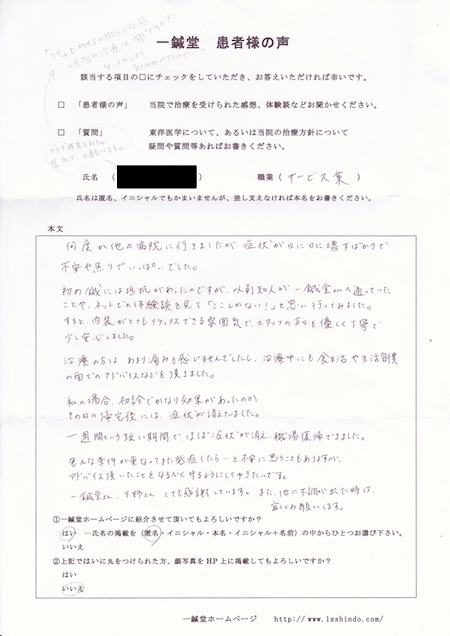 一鍼堂 患者様の声
該当する項目の□にチェックをしていただき、お答えいただければ幸いです。
□ 「患者様の声」 当院で治療を受けられた感想、体験談などお聞かせください。
□ 「質問」 東洋医学について、あるいは当院の治療方針について
疑問や質問等あればお書きください。
氏名 ( ) 職業 ( サービス業 )
氏名は匿名、イニシャルでもかまいませんが、差し支えなければ本名をお書きください。
本文
何度か他の病院に行きましたが、症状が日に日に増すばかりで
不安や焦りでいっぱいでした。
初め鍼には抵抗があったのですが、以前知人が一鍼堂さんへ通っていた
ことや、ネットでの体験談を見て「ここしかない!」と思い行ってみました。
すると、内装がとてもリラックスできる雰囲気で、スタッフの方々も優しく丁寧で
少し安心しました。
治療の方は、あまり痛みも感じませんでしたし、治療中にも食生活や生活習慣
の面でのアドバイスなどを頂きました。
私の場合、初診でかなり効果があったのか
その日の帰宅後には、症状が消えていました。
一週間という短い期間でほぼ症状が消え、職場復帰できました。
色んな条件が重なってまた発症したら…と不安に思うこともありますが、
アドバイス頂いたことをなるべく守るようにしてゆきたいです。
一鍼堂さん、下野さん とても感謝しています。また、他に不調が出た時は、
宜しくお願いします。
①一鍼堂ホームページに紹介させて頂いてもよろしいですか?
はい …氏名の掲載を (匿名・イニシャル・本名・イニシャル+名前) の中からひとつお選び下さい。
いいえ
②上記ではいに丸をつけられた方、顔写真をHP上に掲載してもよろしいですか?
はい
いいえ
一鍼堂ホームページ http://www.1sshindo.com/